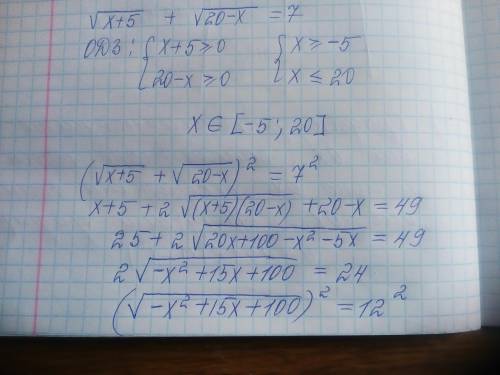 √(x+5) + √(20-x) = 7
ОДЗ: { x+5≥0 { x≥-5
20-x≥0 x≤20
x∈[-5; 20]
(√(x+5) + √(20-x))² = 7²
x+5+2√((x+5)(20-x)) +20-x=49
25+2√(20x+100-x²-5x) = 49
2√(-x²+15x+100) = 24
(√(-x²+15x+100))² = 12²